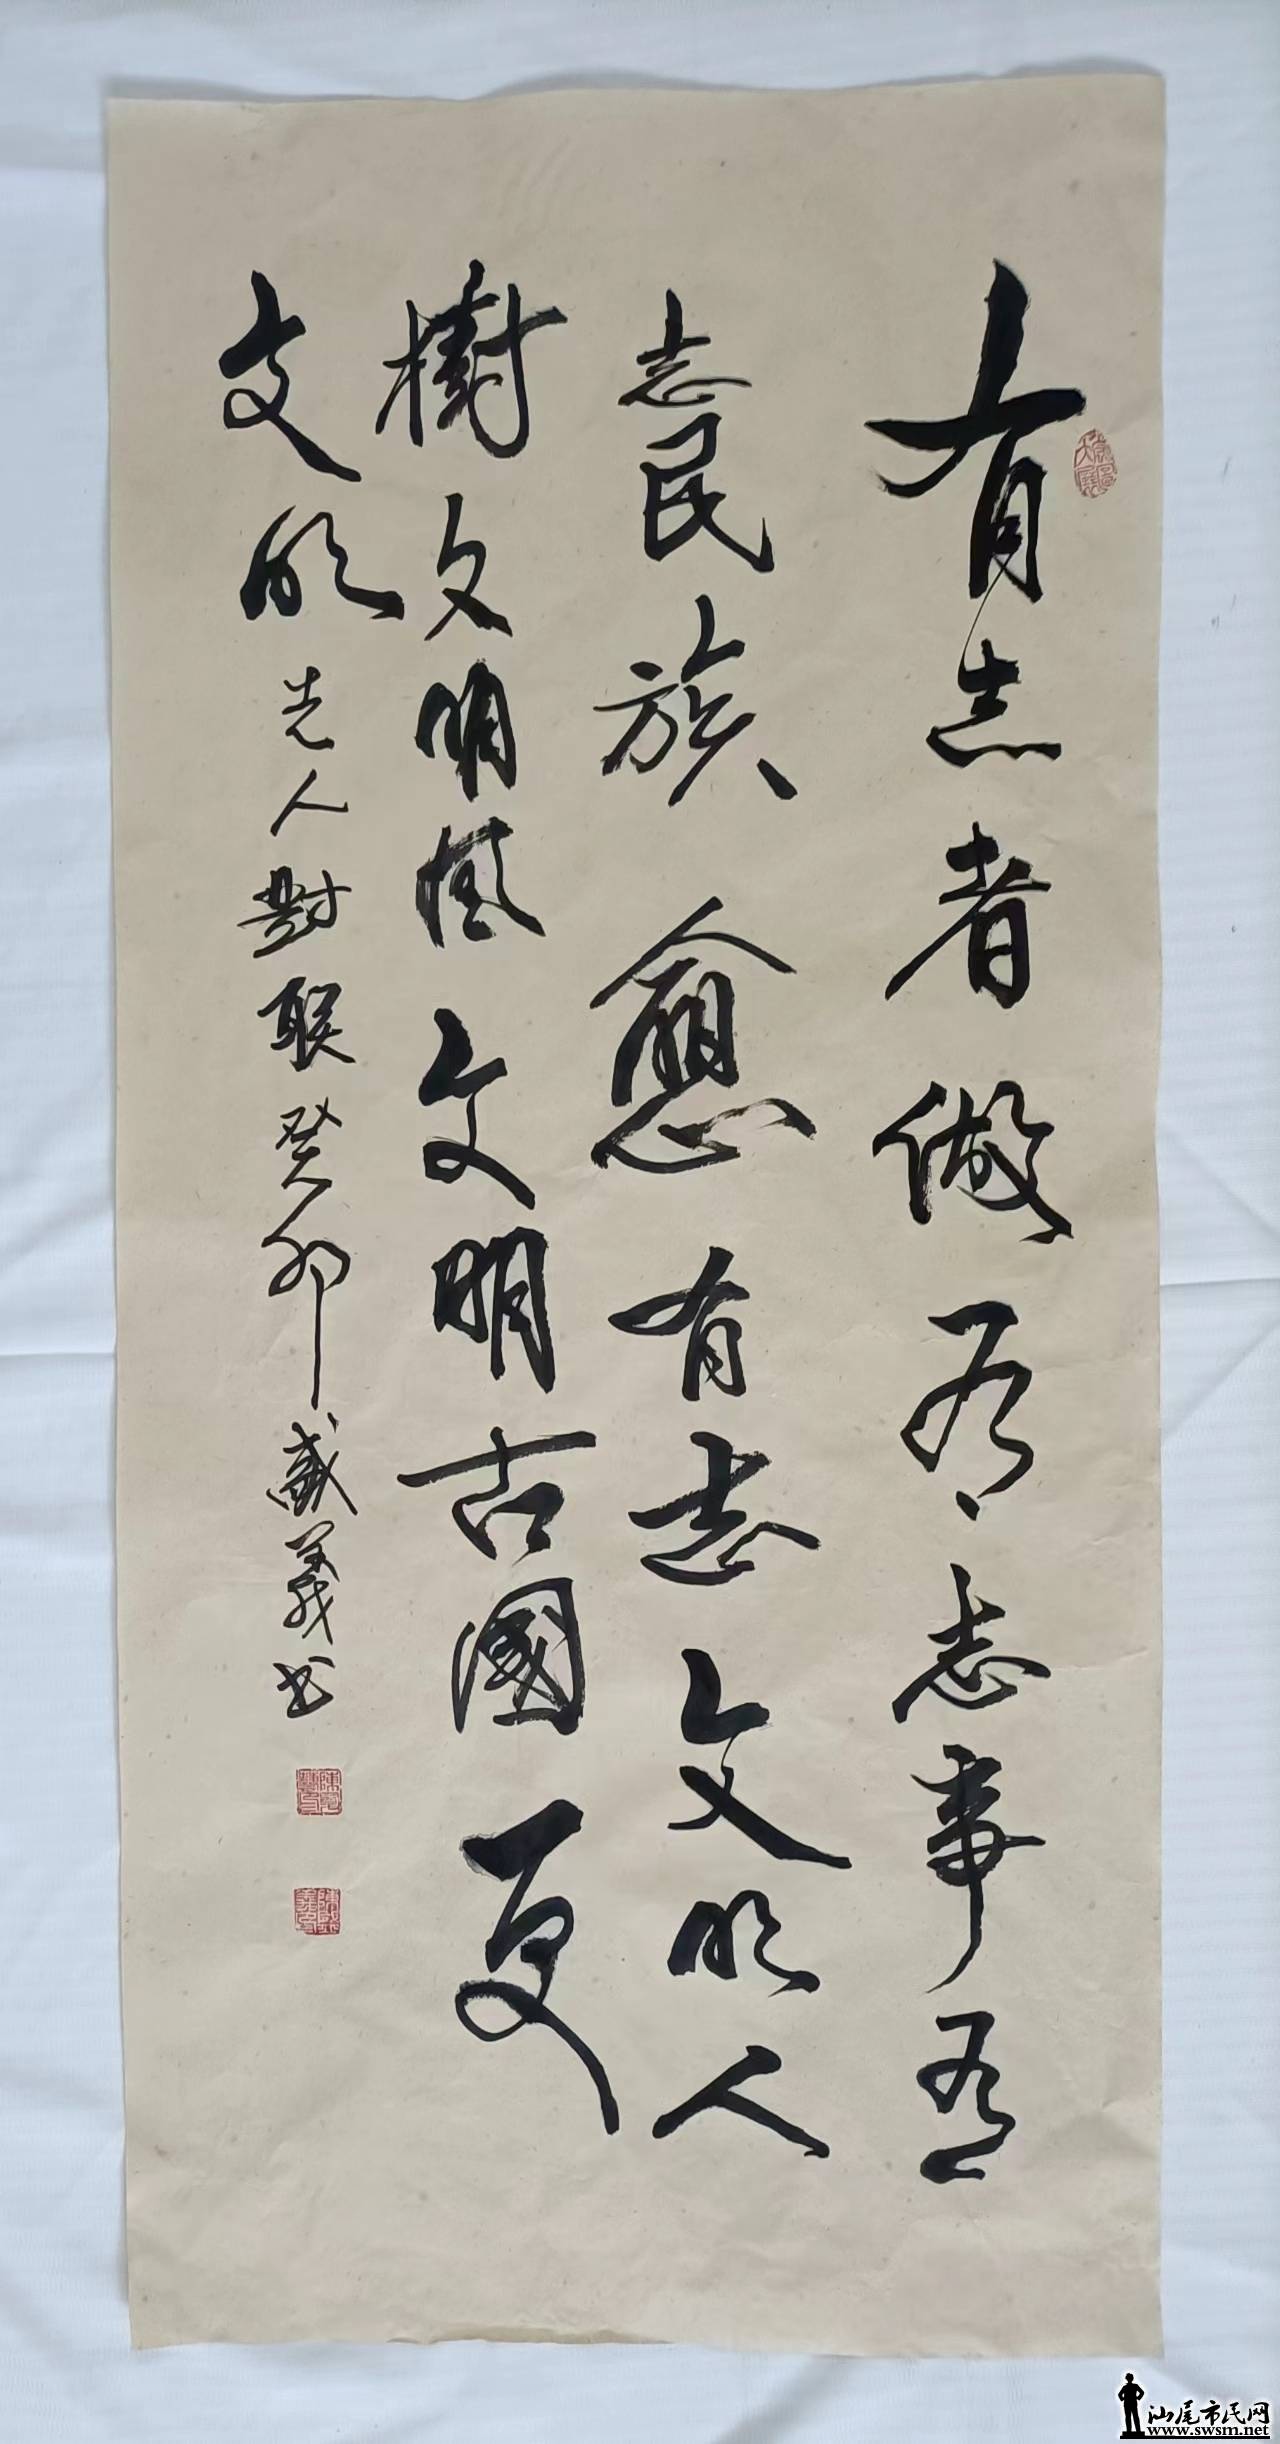 有志者做有志事有
志民族愈有志文明人
樹文明風文明古國更
文明 先人對联癸卯盛義书
汕尾市民网
www.swsm.net